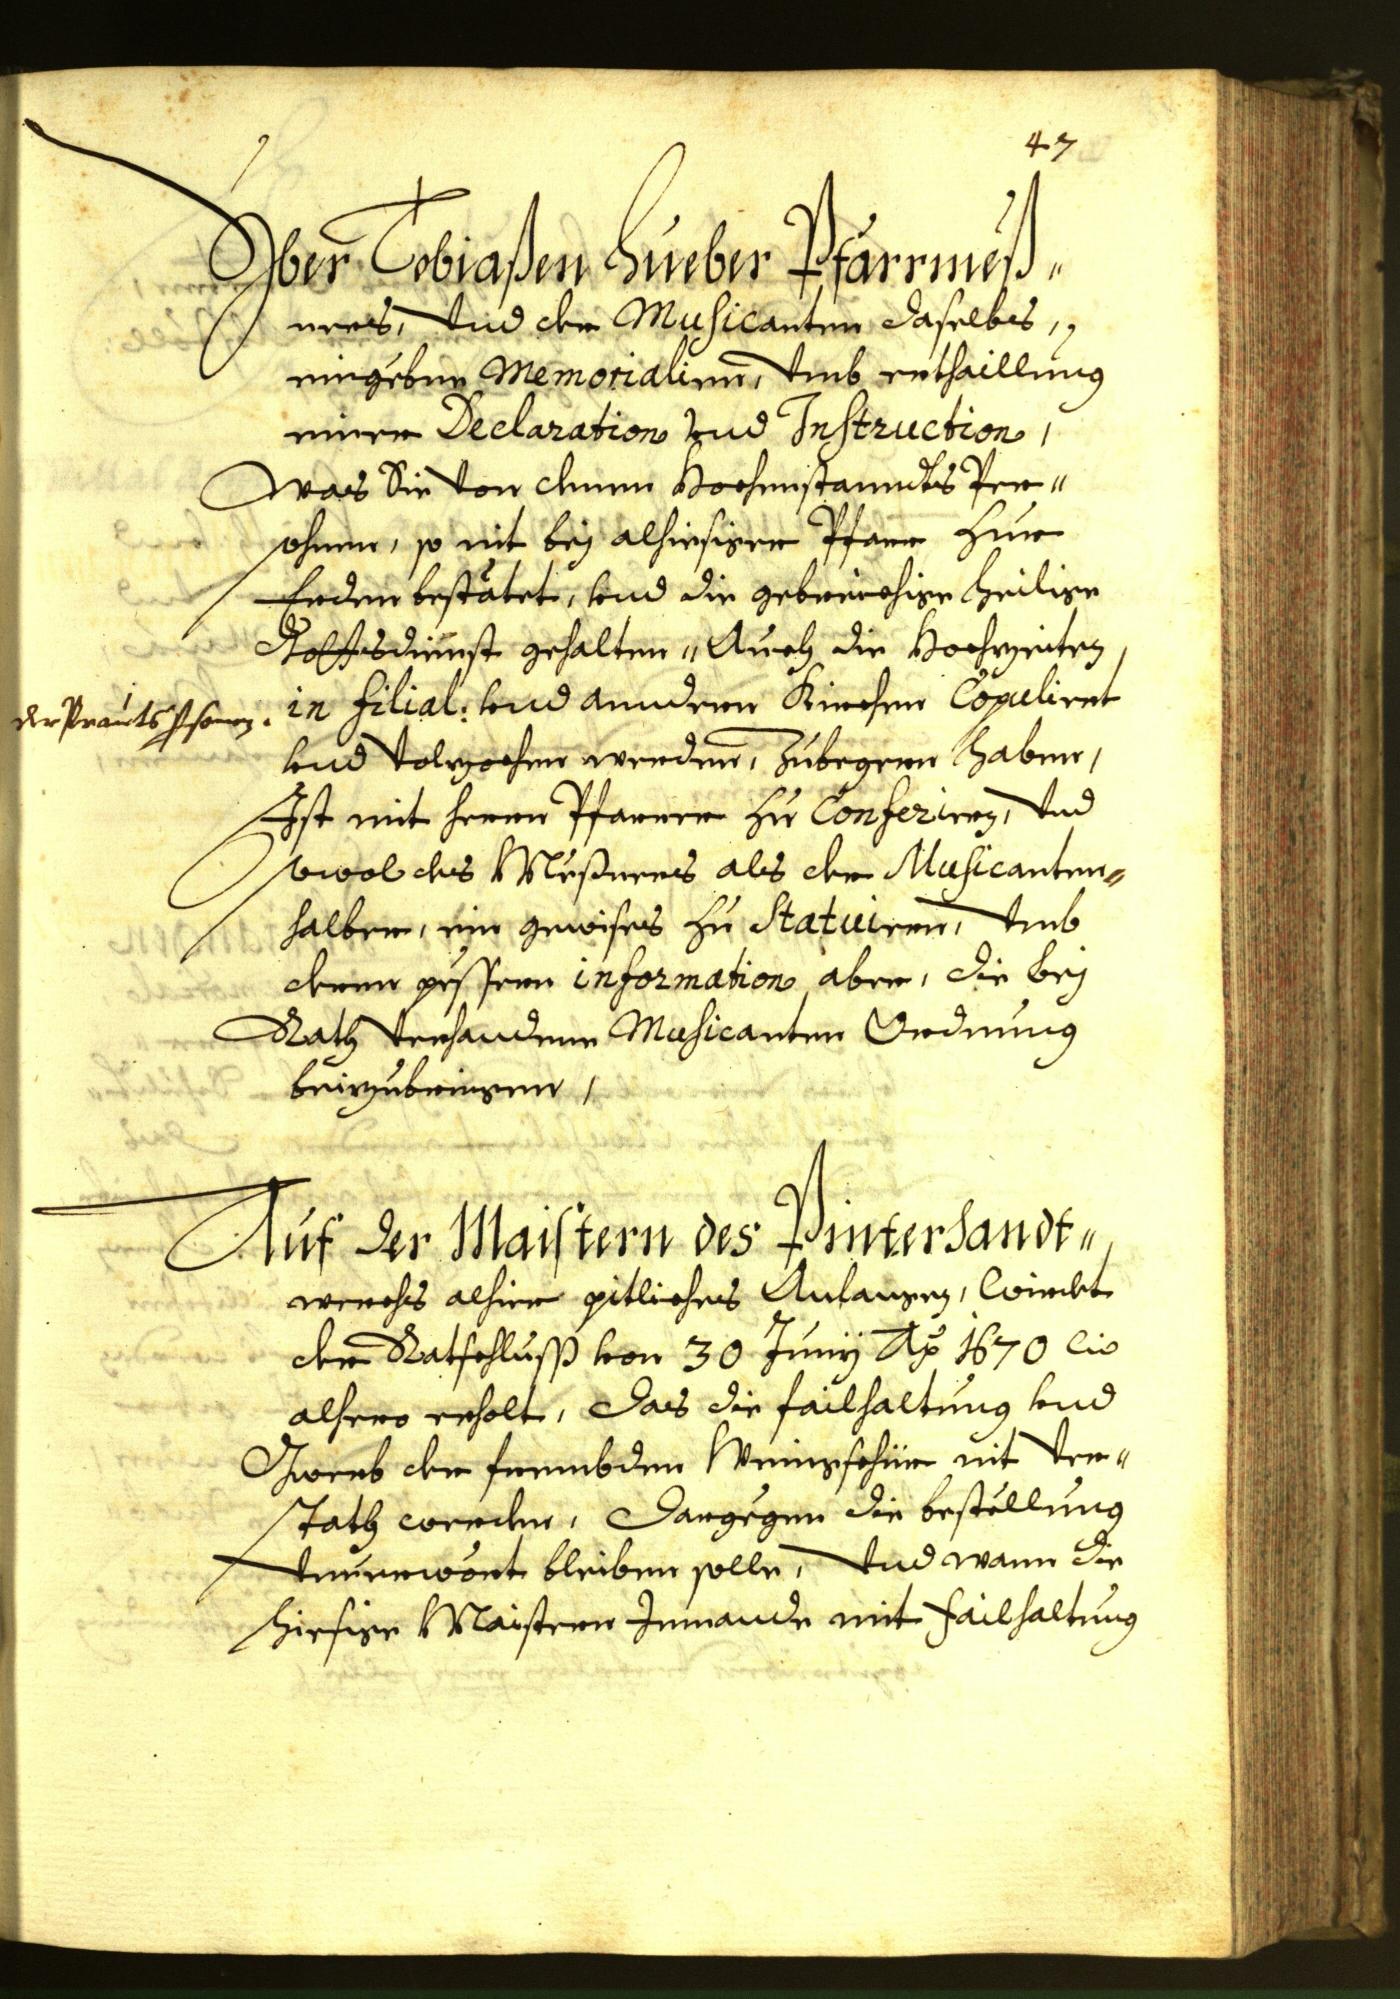 47
Yber Tobiaßen Hueber Pfarrmeß„
ners, vnd der Musicanten daselbs,
eingeben Memorialien, vmb erthaillung
einer Declaration vnd Instruction,
was Sie von denen Hochenstanndts Per„
sohnen, so nit bey alhiesiger Pfarr zur
Erden bestätet, vnd die gebreichige heilige
Gottsdienst gehalten „ Auch die Hochzeiten
der Prauts Psonen. in filial: vnd anndern Kirchen Copuliert
vnd volzochen werden, zubegern haben,
Ist mit herrn Pfarrer zu Conferiern, vnd
sowol des Meßners als der Musicanten„
halber, ein gewises zu Statuiern, vmb
derer pessern information aber, die bey
Rath verhandene Musicanten Ordnung
beizubringen,
Auf der Maistern des Pinterhandt„
werchs alhier pitliches Anlangen, wirdet
der Ratschluss von 30 Junij Ao 1670 wie
alhero erholt, Das die failhaltung vnd
Gwerb der frembden Weingschür nit ver„
stath werden, Dargegen die bestellung
vnuerwört bleiben solle, vnd wann die
hiesige Maistern Jemande mit failhaltung